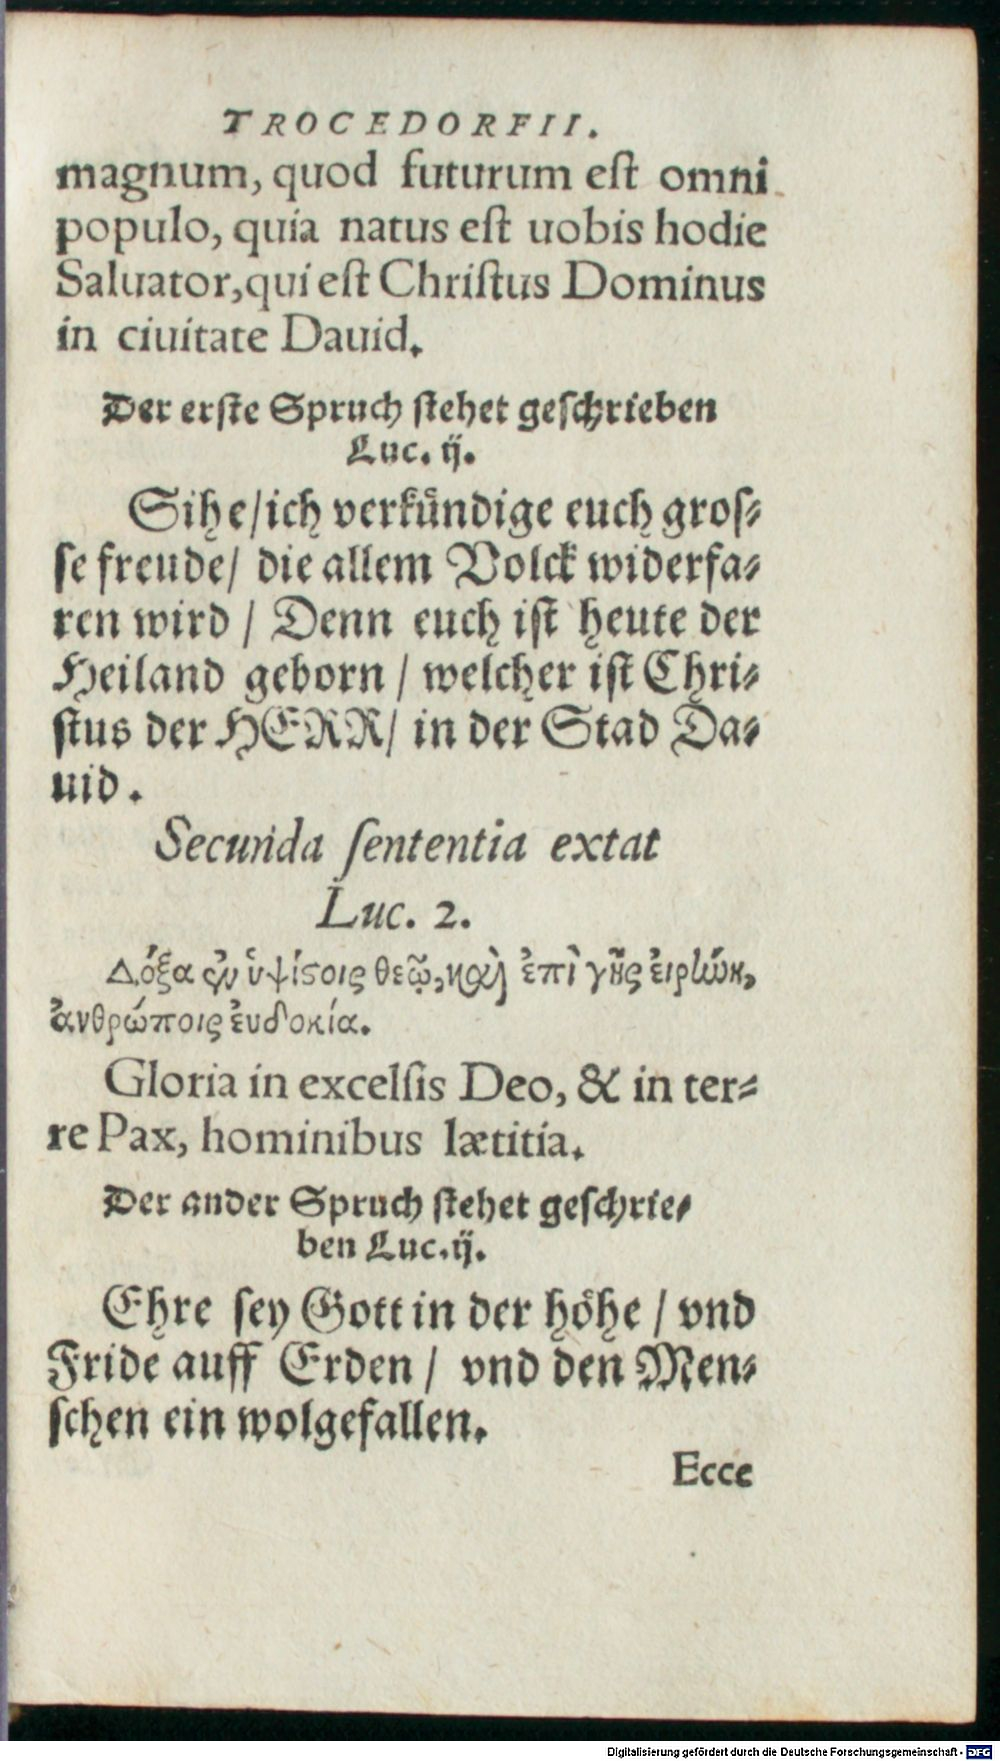 TROCEDORFII.
magnum, quod futurum eſt omni
populo, quia natus eſt uobis hodie
Saluator, qui eſt Chriſtus Dominus
in ciuitate Dauid.
Der erſte Spruch ſtehet geſchrieben
Luc. ij.
Sihe/ich verkündige euch groſ⸗
ſe freude/ die allem Volck widerfa⸗
ren wird / Denn euch iſt heute der
Heiland geborn / welcher iſt Chri⸗
ſtus der HERR/ in der Stad Da⸗
uid.
Secunda ſententia extat
Luc. 2.
Δόξα ἐν ὑψίςοις θεῷ, καὶ ἐπὶ γῆς ἐιρήνη,
ἀνθρώποις ἐυδοκία.
Gloria in excelſis Deo, & in ter⸗
re Pax, hominibus lætitia.
Der ander Spruch ſtehet geſchrie⸗
ben Luc. ij.
Ehre ſey Gott in der höhe / vnd
Fride auff Erden / vnd den Men⸗
ſchen ein wolgefallen.
Ecce
Digitalisierung gefördert durch die Deutsche Forschungsgemeinschaft - DFG